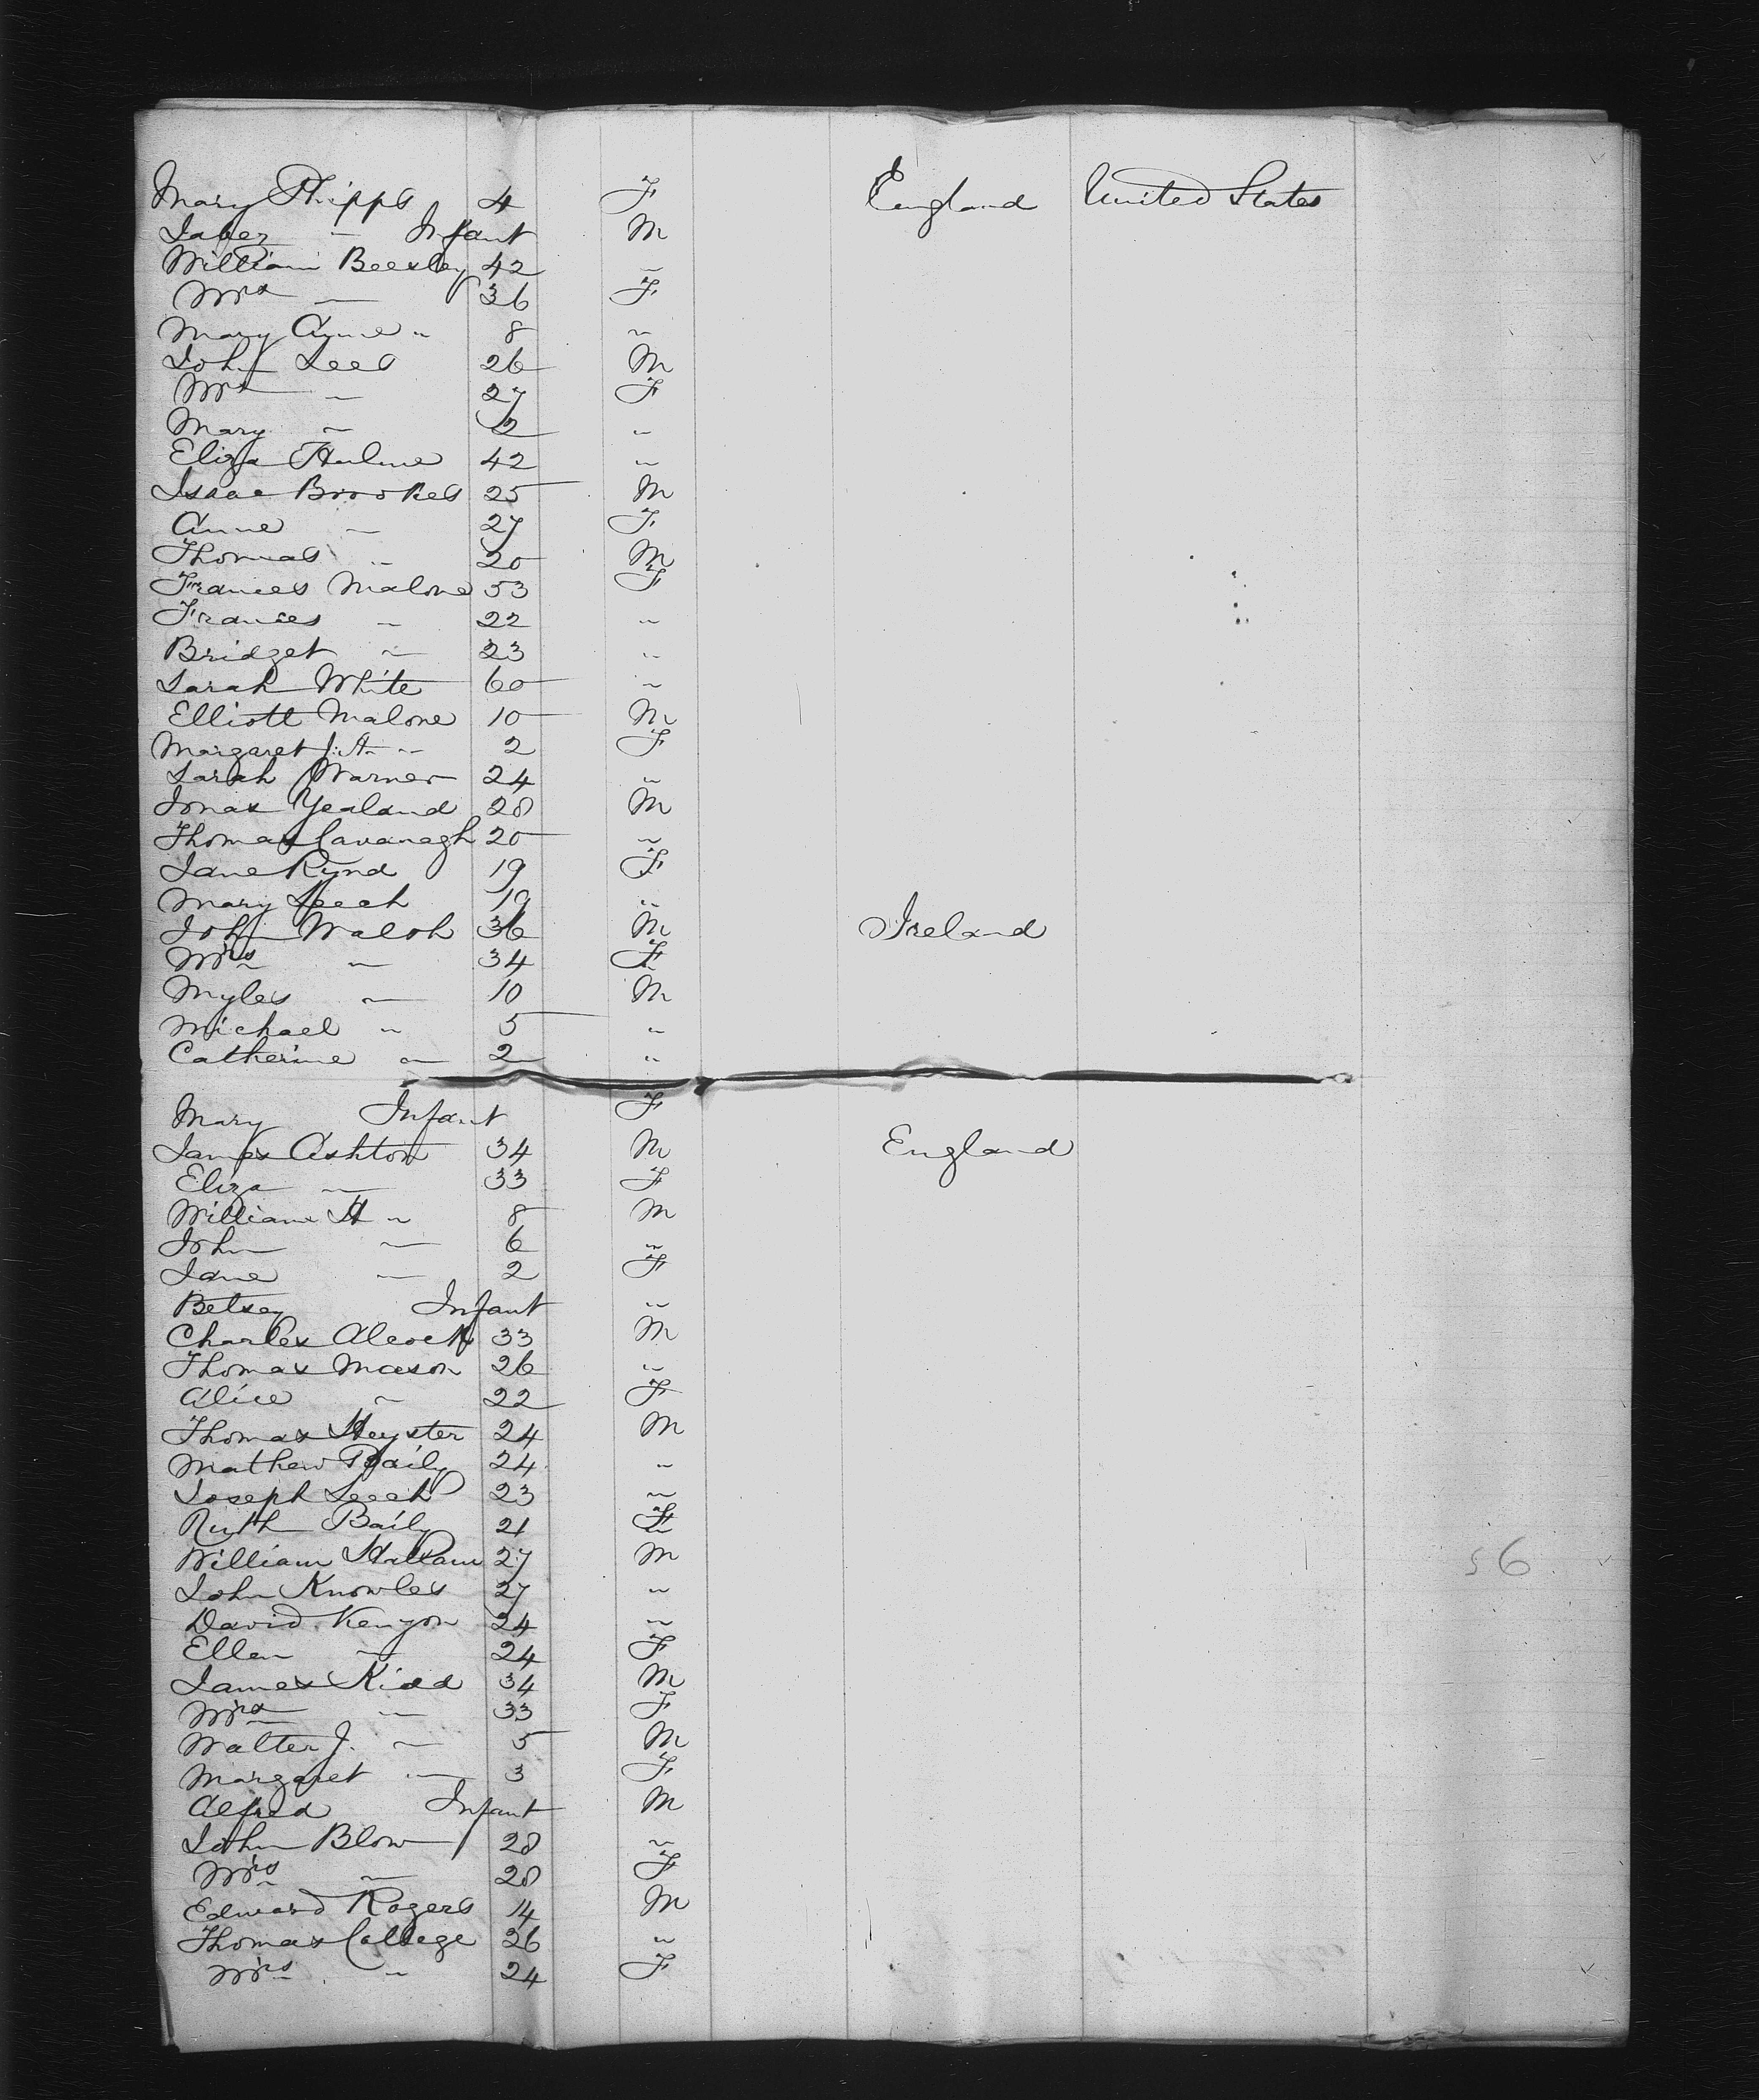 Mary Phipps 4 F England United States
Jabez " Infant M
William Beesley 42 "
Mrs " 36 F
Mary Anne " 8 "
John Lees 26 M
Mrs " 27 F
Mary " 2 "
Eliza Hulme 42 "
Isaac Brookes 25 M
Anne " 27 F
Thomas " 20 M
Frances Malone 53 F
Frances " 22 "
Bridget " 23 "
Sarah White 60 "
Elliott Malone 10 M
Margaret J. A. " 2 F
Sarah Warner 24 "
Jonas Yealand 28 M
Thomas Cavanagh 20 "
Jane Rynd 19 F
Mary Leech 19 "
John Walsh 36 M Ireland
Mrs " 34 F
Myles " 10 M
Michael " 5 "
Catherine " 2 "
Mary Infant F
James Ashton 34 M England
Eliza " 33 F
William H " 8 M
John " 6 "
Jane " 2 F
Betsey Infant "
Charles Alcock 33 M
Thomas Mason 26 "
Alice " 22 F
Thomas Heyster 24 M
Mathew Baily 24 "
Joseph Leech 23 "
Ruth Baily 21 F
William Hallam 27 M
John Knowles 27 "
David Kenyon 24 "
Ellen " 24 F
James Kidd 34 M
Mrs " 33 F
Walter J. " 5 M
Margaret " 3 F
Alfred Infant M
John Blow 28 "
Mrs " 28 F
Edward Rogers 14 M
Thomas College 26 "
Mrs " 24 F
56